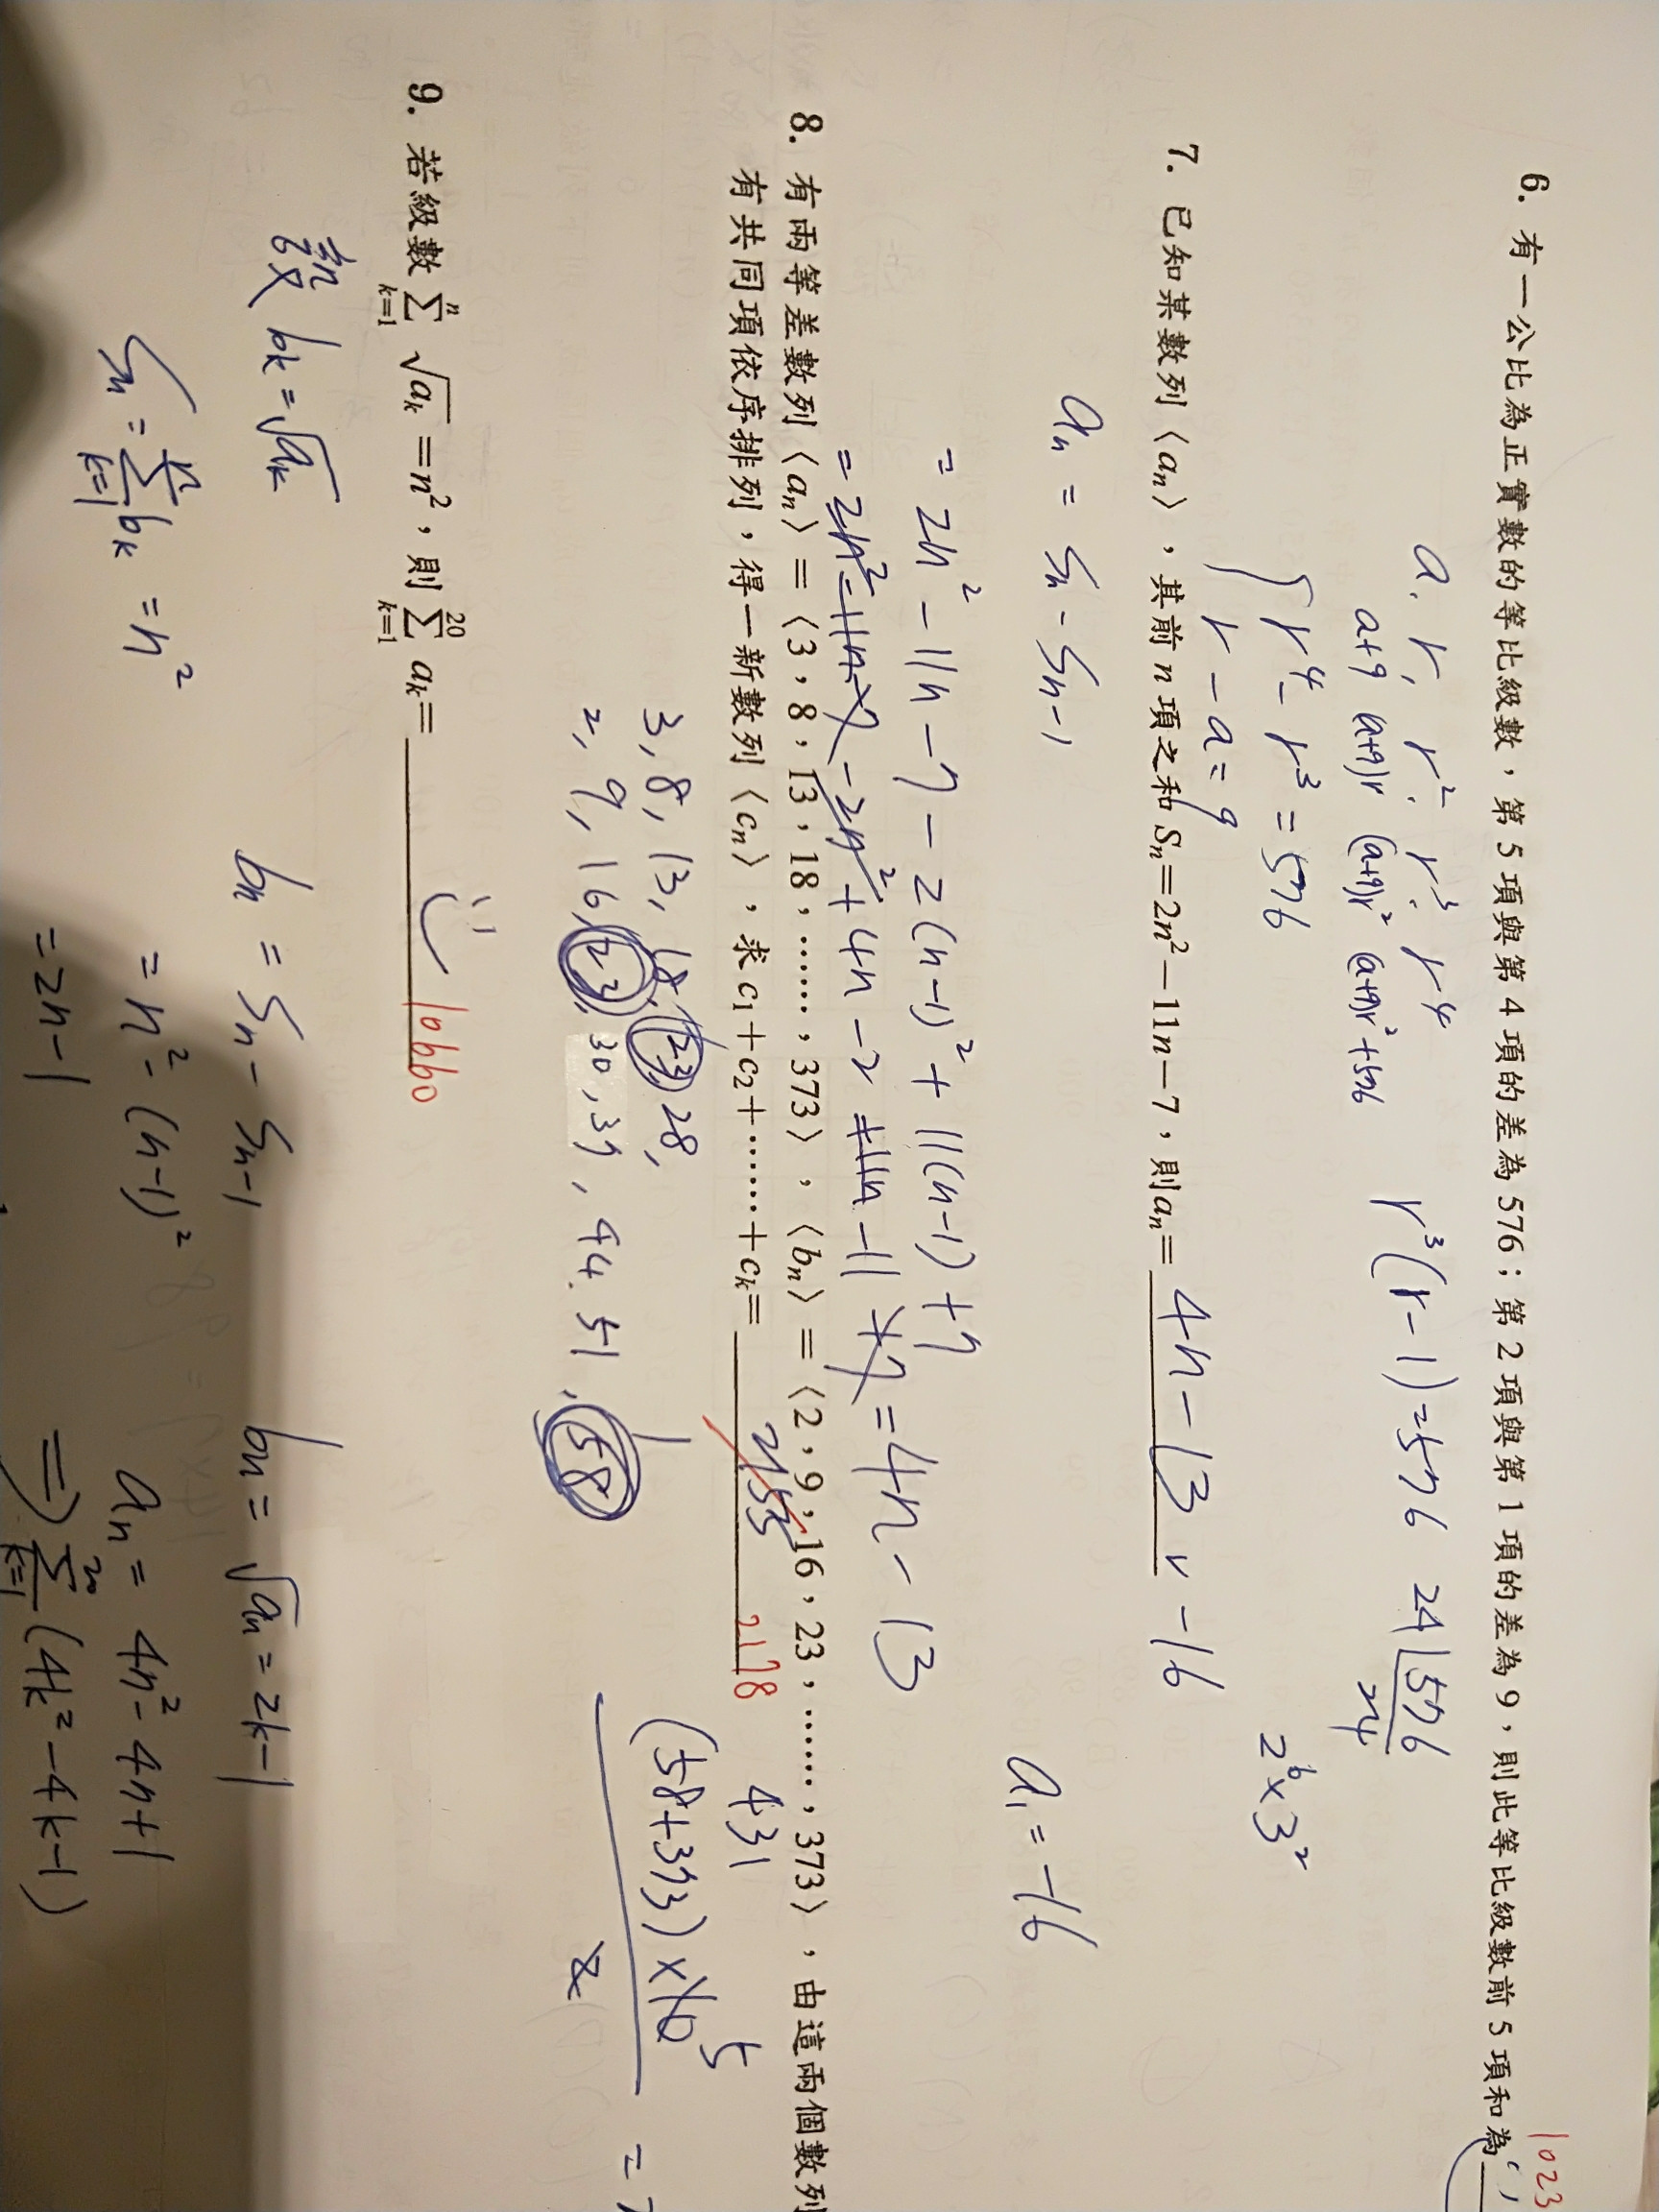 1023
6. 有一公比為正實數的等比級數，第 5 項與第 4 項的差為 576；第 2 項與第 1 項的差為 9，則此等比級數前 5 項和為
a, r, r², r³, r⁴
a+9 (a+9)r (a+9)r² (a+9)r²+576
r³(r-1)=576
24 576
24
r⁴-r³=576
r-a=9
2⁶×3²
7. 已知某數列〈aₙ〉，其前 n 項之和 Sₙ=2n²-11n-7，則 aₙ= 4n-13 v -16
aₙ = Sₙ-Sₙ₋₁
a₁=-16
= 2n²-11n-7-2(n-1)²+11(n-1)+7
= 2n²-11n-7-2n²+4n-2+11n-11+7=4n-13
8. 有兩等差數列〈aₙ〉=〈3，8，13，18，……，373〉，〈bₙ〉=〈2，9，16，23，……，373〉，由這兩個數列
有共同項依序排列，得一新數列〈cₙ〉，求 c₁+c₂+……+cₖ= 2155 2178
431
3,8,13,18,23,28,
(58+373)×10 5
2
2,9,16,23,30,37,44,51,58
9. 若級數 Σₖ₌₁ⁿ √aₖ=n²，則 Σₖ₌₁²⁰ aₖ= 10660
設 bₖ=√aₖ
Sₙ=Σₖ₌₁ⁿ bₖ=n²
bₙ = Sₙ-Sₙ₋₁
= n²-(n-1)²
= 2n-1
bₙ=√aₙ=2k-1
aₙ= 4n²-4n+1
⇒ Σₖ₌₁²⁰ (4k²-4k-1)